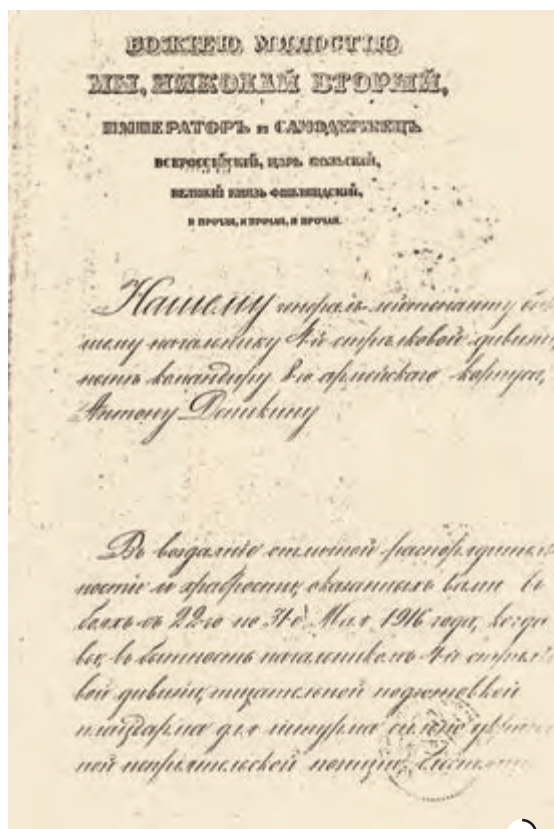 БОЖІЕЮ МИЛОСТІЮ
МЫ, НИКОЛАЙ ВТОРЫЙ,
ИМПЕРАТОРЪ и САМОДЕРЖЕЦЪ
ВСЕРОССІЙСКІЙ, ЦАРЬ ПОЛЬСКІЙ,
ВЕЛИКІЙ КНЯЗЬ ФИНЛЯНДСКІЙ,
И ПРОЧАЯ, И ПРОЧАЯ, И ПРОЧАЯ.
Нашему генералъ-лейтенанту быв
шему начальнику 4-й стрѣлковой дивизіи,
нынѣ командиру 8-го армейскаго корпуса,
Антону Деникину
Въ воздаяніе отличной распорядитель
ности и храбрости, оказанныхъ вами въ
бояхъ съ 22-го по 31-е Мая 1916 года, когда
вы, въ бытность начальникомъ 4-й стрѣлко
вой дивизіи, тщательной подготовкой
плацдарма для штурма сильно укрѣплен
ной непріятельской позиціи,